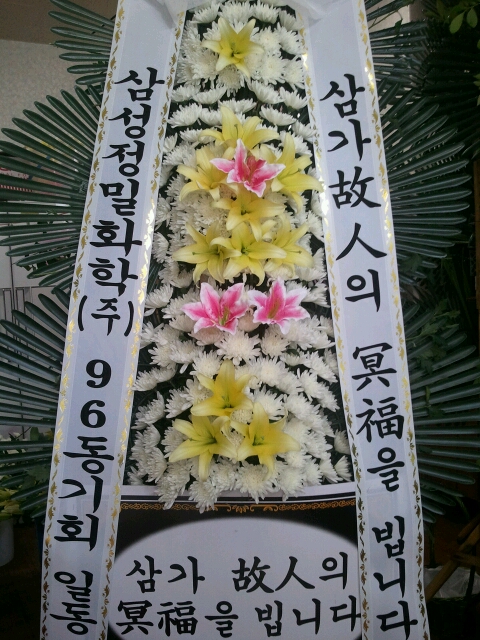 삼성정밀화학(주) 96동기회 일동
삼가故人의 冥福을 빕니다
삼가 故人의
冥福을 빕니다